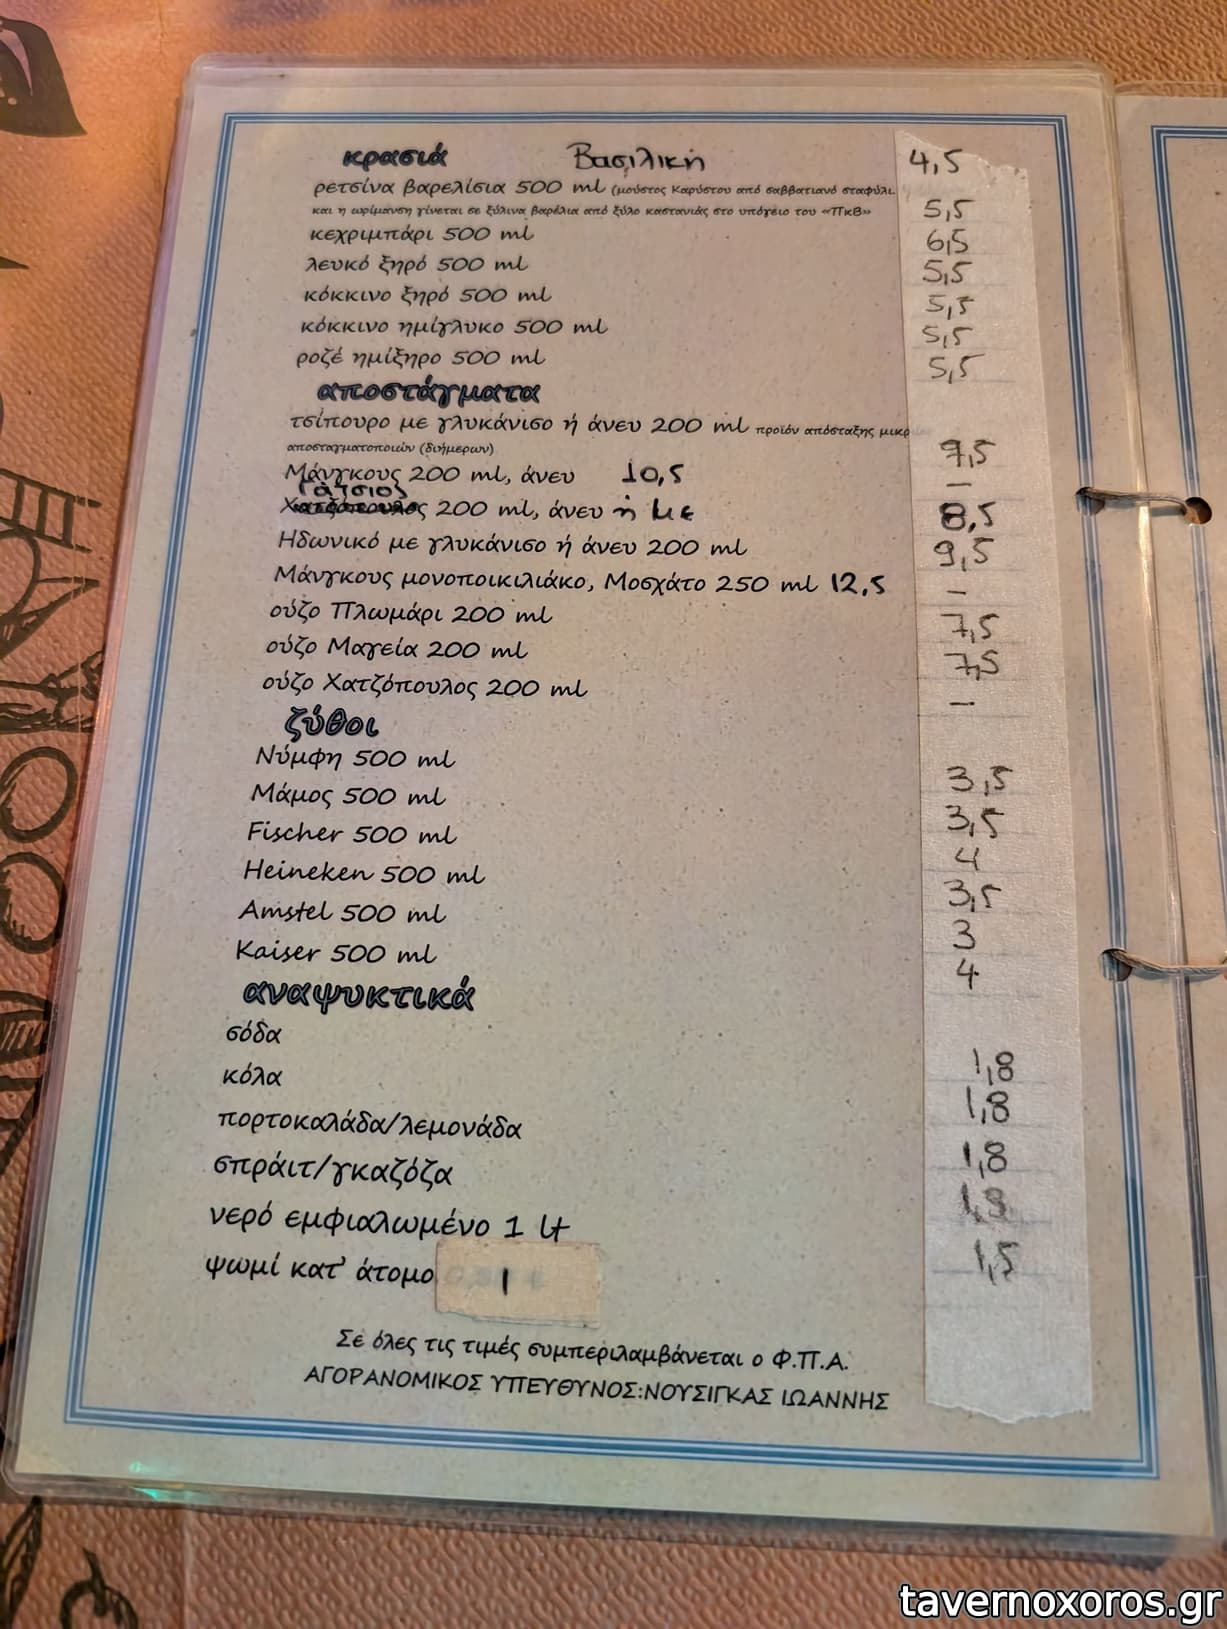 κρασιά Βασιλική 4,5
ρετσίνα βαρελίσια 500 ml (μούστος Καρύστου από σαββατιανό σταφύλι
και η ωρίμανση γίνεται σε ξύλινα βαρέλια από ξύλο καστανιάς στο υπόγειο του «ΠκΒ» 5,5
κεχριμπάρι 500 ml 6,5
λευκό ξηρό 500 ml 5,5
κόκκινο ξηρό 500 ml 5,5
κόκκινο ημίγλυκο 500 ml 5,5
ροζέ ημίξηρο 500 ml 5,5
αποστάγματα
τσίπουρο με γλυκάνισο ή άνευ 200 ml προϊόν απόσταξης μικρ
αποσταγματοποιών (διήμερων) 7,5
Μάνγκους 200 ml, άνευ 10,5 –
Γάτσιος
Χατζόπουλος 200 ml, άνευ ή με 8,5
Ηδωνικό με γλυκάνισο ή άνευ 200 ml 9,5
Μάνγκους μονοποικιλιάκο, Μοσχάτο 250 ml 12,5 –
ούζο Πλωμάρι 200 ml 7,5
ούζο Μαγεία 200 ml 7,5
ούζο Χατζόπουλος 200 ml –
ζύθοι
Νύμφη 500 ml 3,5
Μάμος 500 ml 3,5
Fischer 500 ml 4
Heineken 500 ml 3,5
Amstel 500 ml 3
Kaiser 500 ml 4
αναψυκτικά
σόδα 1,8
κόλα 1,8
πορτοκαλάδα/λεμονάδα 1,8
σπράιτ/γκαζόζα 1,8
νερό εμφιαλωμένο 1 lt 1,5
ψωμί κατ' άτομο 1
Σε όλες τις τιμές συμπεριλαμβάνεται ο Φ.Π.Α.
ΑΓΟΡΑΝΟΜΙΚΟΣ ΥΠΕΥΘΥΝΟΣ:ΝΟΥΣΙΓΚΑΣ ΙΩΑΝΝΗΣ
tavernoxoros.gr